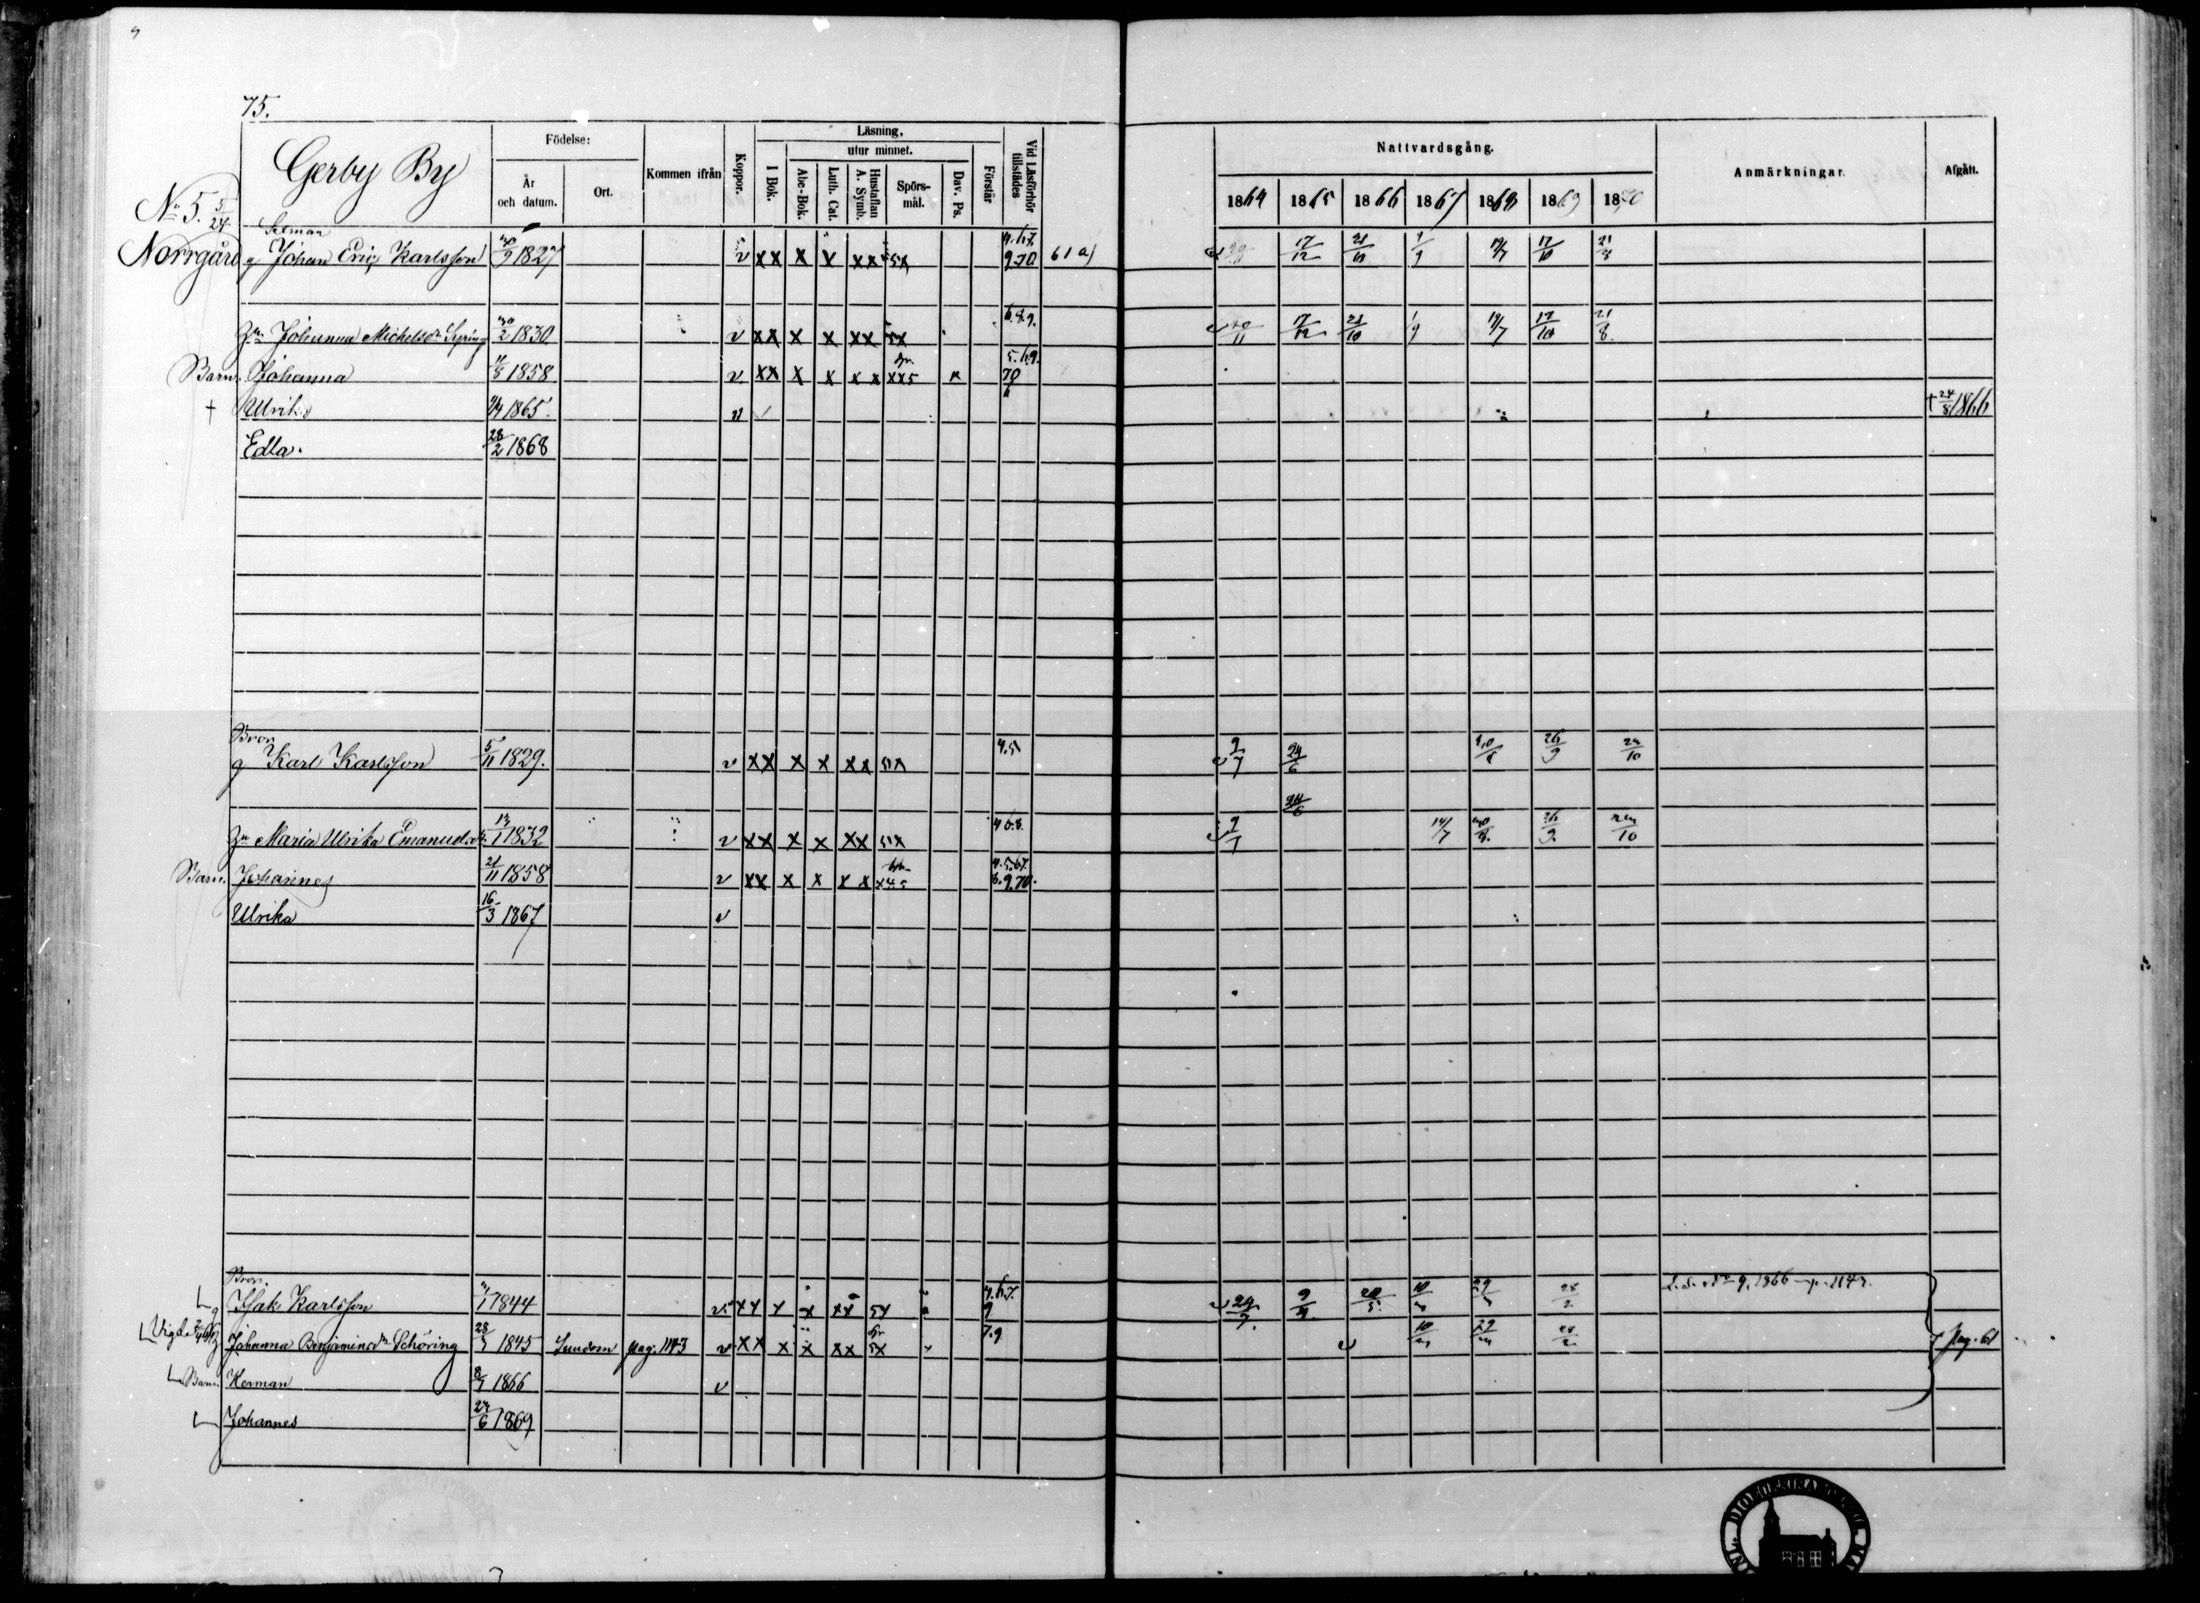 75.
Gerby By
Födelse:
År och datum.
Ort.
Kommen ifrån
Koppor.
Läsning,
utur minnet.
I Bok.
Abc-Bok.
Luth. Cat.
Hustaflan A. Symb.
Spörsmål.
Dav. Ps.
Förstår
Vid Läsförhör tillstädes
Nattvardsgång.
1864 1865 1866 1867 1868 1869 1870
Anmärkningar.
Afgått.
No 5. 5/24
Norrgård
g Johan Eric Karlsson 1827 v xx x x xx 5x 4.6.7. 9.70 61 a) 17/12 21/10 1/9 17/10 21/8
Johanna Michelsdr 2 1830 v xx x x xx 5x 6.8.9. 17/12 21/10 1/9 17/10 21/8
Barn. Johanna 1858 v xx x x x x xx5 x 5.6.9. 70
† Ulrika 1865. v † 24/8 1866
Edla. 28/2 1868
Bror
g Karl Karlsson 5/11 1829. v xx x x xx 5x 4.5 9/7 24/6 26/9 24/10
24/6
Maria Ulrika Emanuelsdr 1832 v xx x x xx 5x 9/7 14/7 26/9 10
Barn. Johannes 21/11 1858 v xx x x x x x4.5 4.5.6.7. 8.9.70.
Ulrika 16/3 1867 v
Bror.
g Isak Karlsson 1 1844 v xx x x xx 5x 4.6.7. 9 24/7 9/9 20/5 10 29 28/2 1866 p. 1143.
Vigda Johanna Benjaminsdr Schöring 28 1845 Sundom pag. 1143 v xx x x xx 5x 7.9 10 29 28/2 pag. 61
Barn. Herman 8/7 1866 v
Johannes 24/6 1869